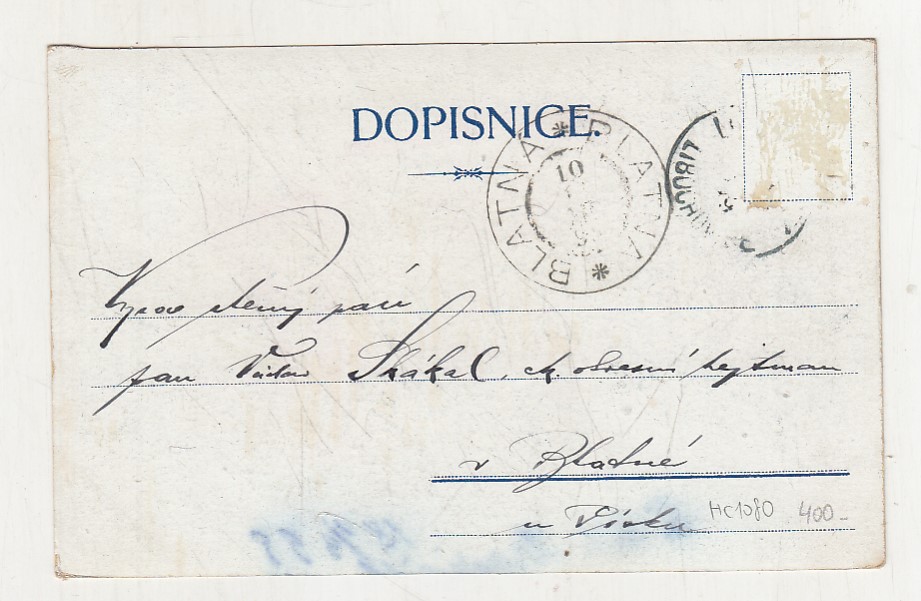 DOPISNICE.
BLATNA * BLATNA *
10
LIBOCHO
pan Václav Skákal, ck. okresní hejtman
v Blatné
u Písku
HC1080 400-